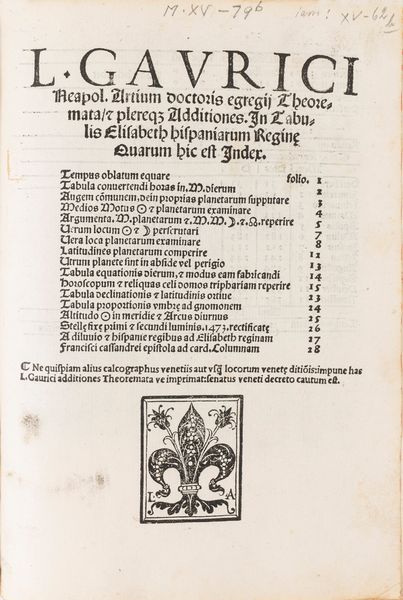 M·XV-79b
iam! XV-62b
L·GAVRICI
Neapol. Artium doctoris egregij Theore⸗
mata/⁊ plereqꝫ Additiones. In Tabu⸗
lis Elisabeth hispaniarum Reginę
Quarum hic est Index.
Tempus oblatum equare folio. 1
Tabula conuertendi horas in. M. dierum 2
Augem cōmunem, dein proprias planetarum supputare 3
Medios Motus ☉ ⁊ planetarum examinare 4
Argumenta. M. planetarum ⁊. M. M. ☽. ⁊. ☊. reperire 5
Uerum locum ☉ ⁊ ☽ perscrutari 7
Uera loca planetarum examinare 8
Latitudines planetarum comperire 12
Utrum planete sint in abside vel perigio 13
Tabula equationis dierum, ⁊ modus eam fabricandi 14
Horoscopum ⁊ reliquas celi domos triphariam reperire 15
Tabula declinationis ⁊ latitudinis ortiue 23
Tabula proportionis vmbrę ad gnomonem 24
Altitudo ☉ in meridie ⁊ Arcus diurnus 25
Stellę fixę primi ⁊ secundi luminis. 1473. rectificatę 26
A diluuio ⁊ hispanie regibus ad Elisabeth reginam 27
Francisci cassandrei epistola ad card. Columnam 28
¶ Ne quispiam alius calcographus venetiis aut vsq̄ locorum venetę ditiōis: impune has
L. Gaurici additiones Theoremata ve imprimat: senatus veneti decreto cautum est.
L A